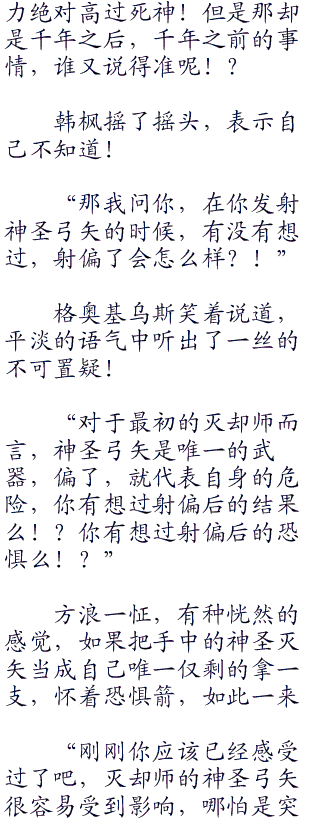 力绝对高过死神！但是那却
是千年之后，千年之前的事
情，谁又说得准呢！？
韩枫摇了摇头，表示自
己不知道！
“那我问你，在你发射
神圣弓矢的时候，有没有想
过，射偏了会怎么样？！”
格奥基乌斯笑着说道，
平淡的语气中听出了一丝的
不可置疑！
“对于最初的灭却师而
言，神圣弓矢是唯一的武
器，偏了，就代表自身的危
险，你有想过射偏后的结果
么！？你有想过射偏后的恐
惧么！？”
方浪一怔，有种恍然的
感觉，如果把手中的神圣灭
矢当成自己唯一仅剩的拿一
支，怀着恐惧箭，如此一来
“刚刚你应该已经感受
过了吧，灭却师的神圣弓矢
很容易受到影响，哪怕是突